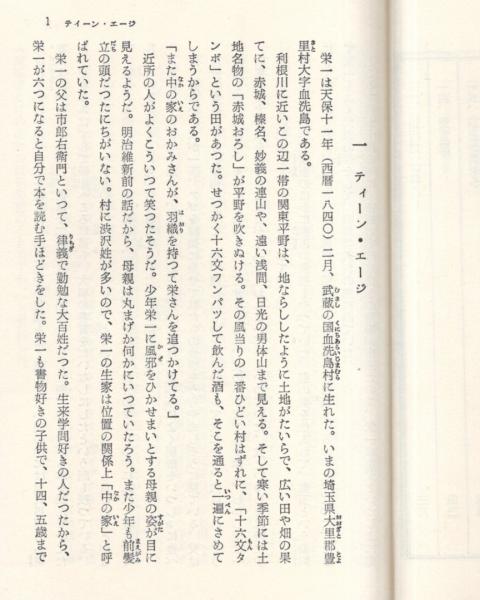 1 ティーン・エージ
一 ティーン・エージ
栄一は天保十一年（西暦一八四〇）二月、武蔵の国血洗島村に生れた。いまの埼玉県大里郡豊
里村大字血洗島である。
利根川に近いこの辺一帯の関東平野は、地ならししたように土地がたいらで、広い田や畑の果
てに、赤城、榛名、妙義の連山や、遠い浅間、日光の男体山まで見える。そして寒い季節には土
地名物の「赤城おろし」が平野を吹きぬける。その風当りの一番ひどい村はずれに、「十六文タ
ンボ」という田があつた。せつかく十六文フンパツして飲んだ酒も、そこを通ると一遍にさめて
しまうからである。
「また中の家のおかみさんが、羽織を持つて栄さんを追つかけてる。」
近所の人がよくこういつて笑つたそうだ。少年栄一に風邪をひかせまいとする母親の姿が目に
見えるようだ。明治維新前の話だから、母親は丸まげか何かにいつていたろう。また少年も前髪
立の頭だつたにちがいない。村に渋沢姓が多いので、栄一の生家は位置の関係上「中の家」と呼
ばれていた。
栄一の父は市郎右衛門といつて、律義で勤勉な大百姓だつた。生来学問好きの人だつたから、
栄一が六つになると自分で本を読む手ほどきをした。栄一も書物好きの子供で、十四、五歳まで